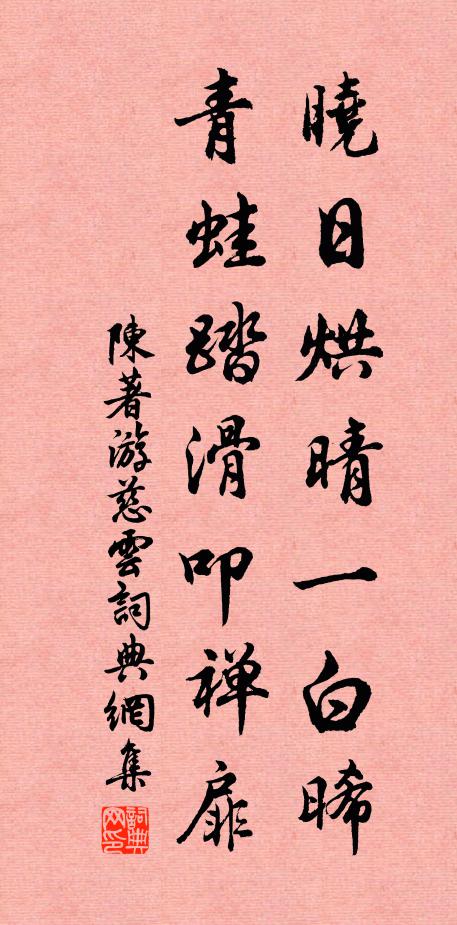 曉日烘晴一白晞
青蛙踏滑叩禅扉
陳著游慈雲詞典網集
詞典网印